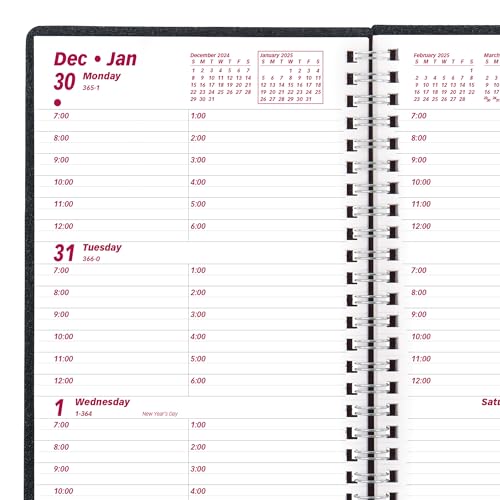 Dec • Jan
30 Monday
365-1
December 2024
S M T W T F S
1 2 3 4 5 6 7
8 9 10 11 12 13 14
15 16 17 18 19 20 21
22 23 24 25 26 27 28
29 30 31
January 2025
S M T W T F S
1 2 3 4
5 6 7 8 9 10 11
12 13 14 15 16 17 18
19 20 21 22 23 24 25
26 27 28 29 30 31
February 2025
S M T W T F S
1
2 3 4 5 6 7 8
9 10 11 12 13 14 15
16 17 18 19 20 21 22
23 24 25 26 27 28
March
S M T
2 3
9 10
16 17
7:00 1:00 7:00
8:00 2:00 8:00
9:00 3:00 9:00
10:00 4:00 10:00
11:00 5:00 11:00
12:00 6:00 12:00
31 Tuesday
366-0
7:00 1:00 7:00
8:00 2:00 8:00
9:00 3:00 9:00
10:00 4:00 10:00
11:00 5:00 11:00
12:00 6:00 12:00
1 Wednesday
1-364 New Year's Day
Satu
7:00 1:00
8:00 2:00
9:00 3:00
10:00 4:00